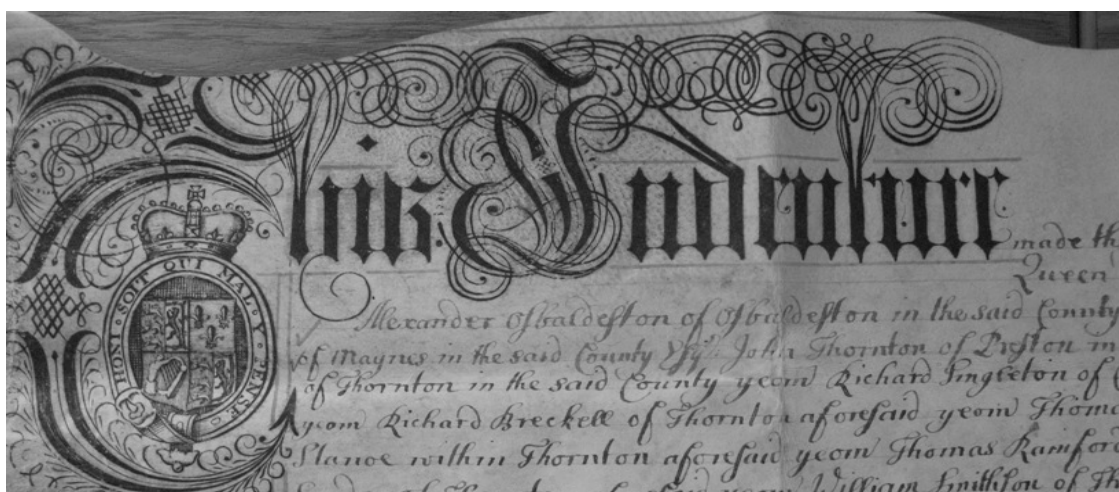 This Indenture made th
Queen
HONI · SOIT · QUI · MAL · Y · PENSE
Alexander Osbaldeston of Osbaldeston in the said County
of Maynes in the said County Esqr John Thornton of Preston in
of Thornton in the said County yeom Richard Singleton of
yeom Richard Breckell of Thornton aforesaid yeom Thom
Stanoe within Thornton aforesaid yeom Thomas Rainfor
William Smithson of Th